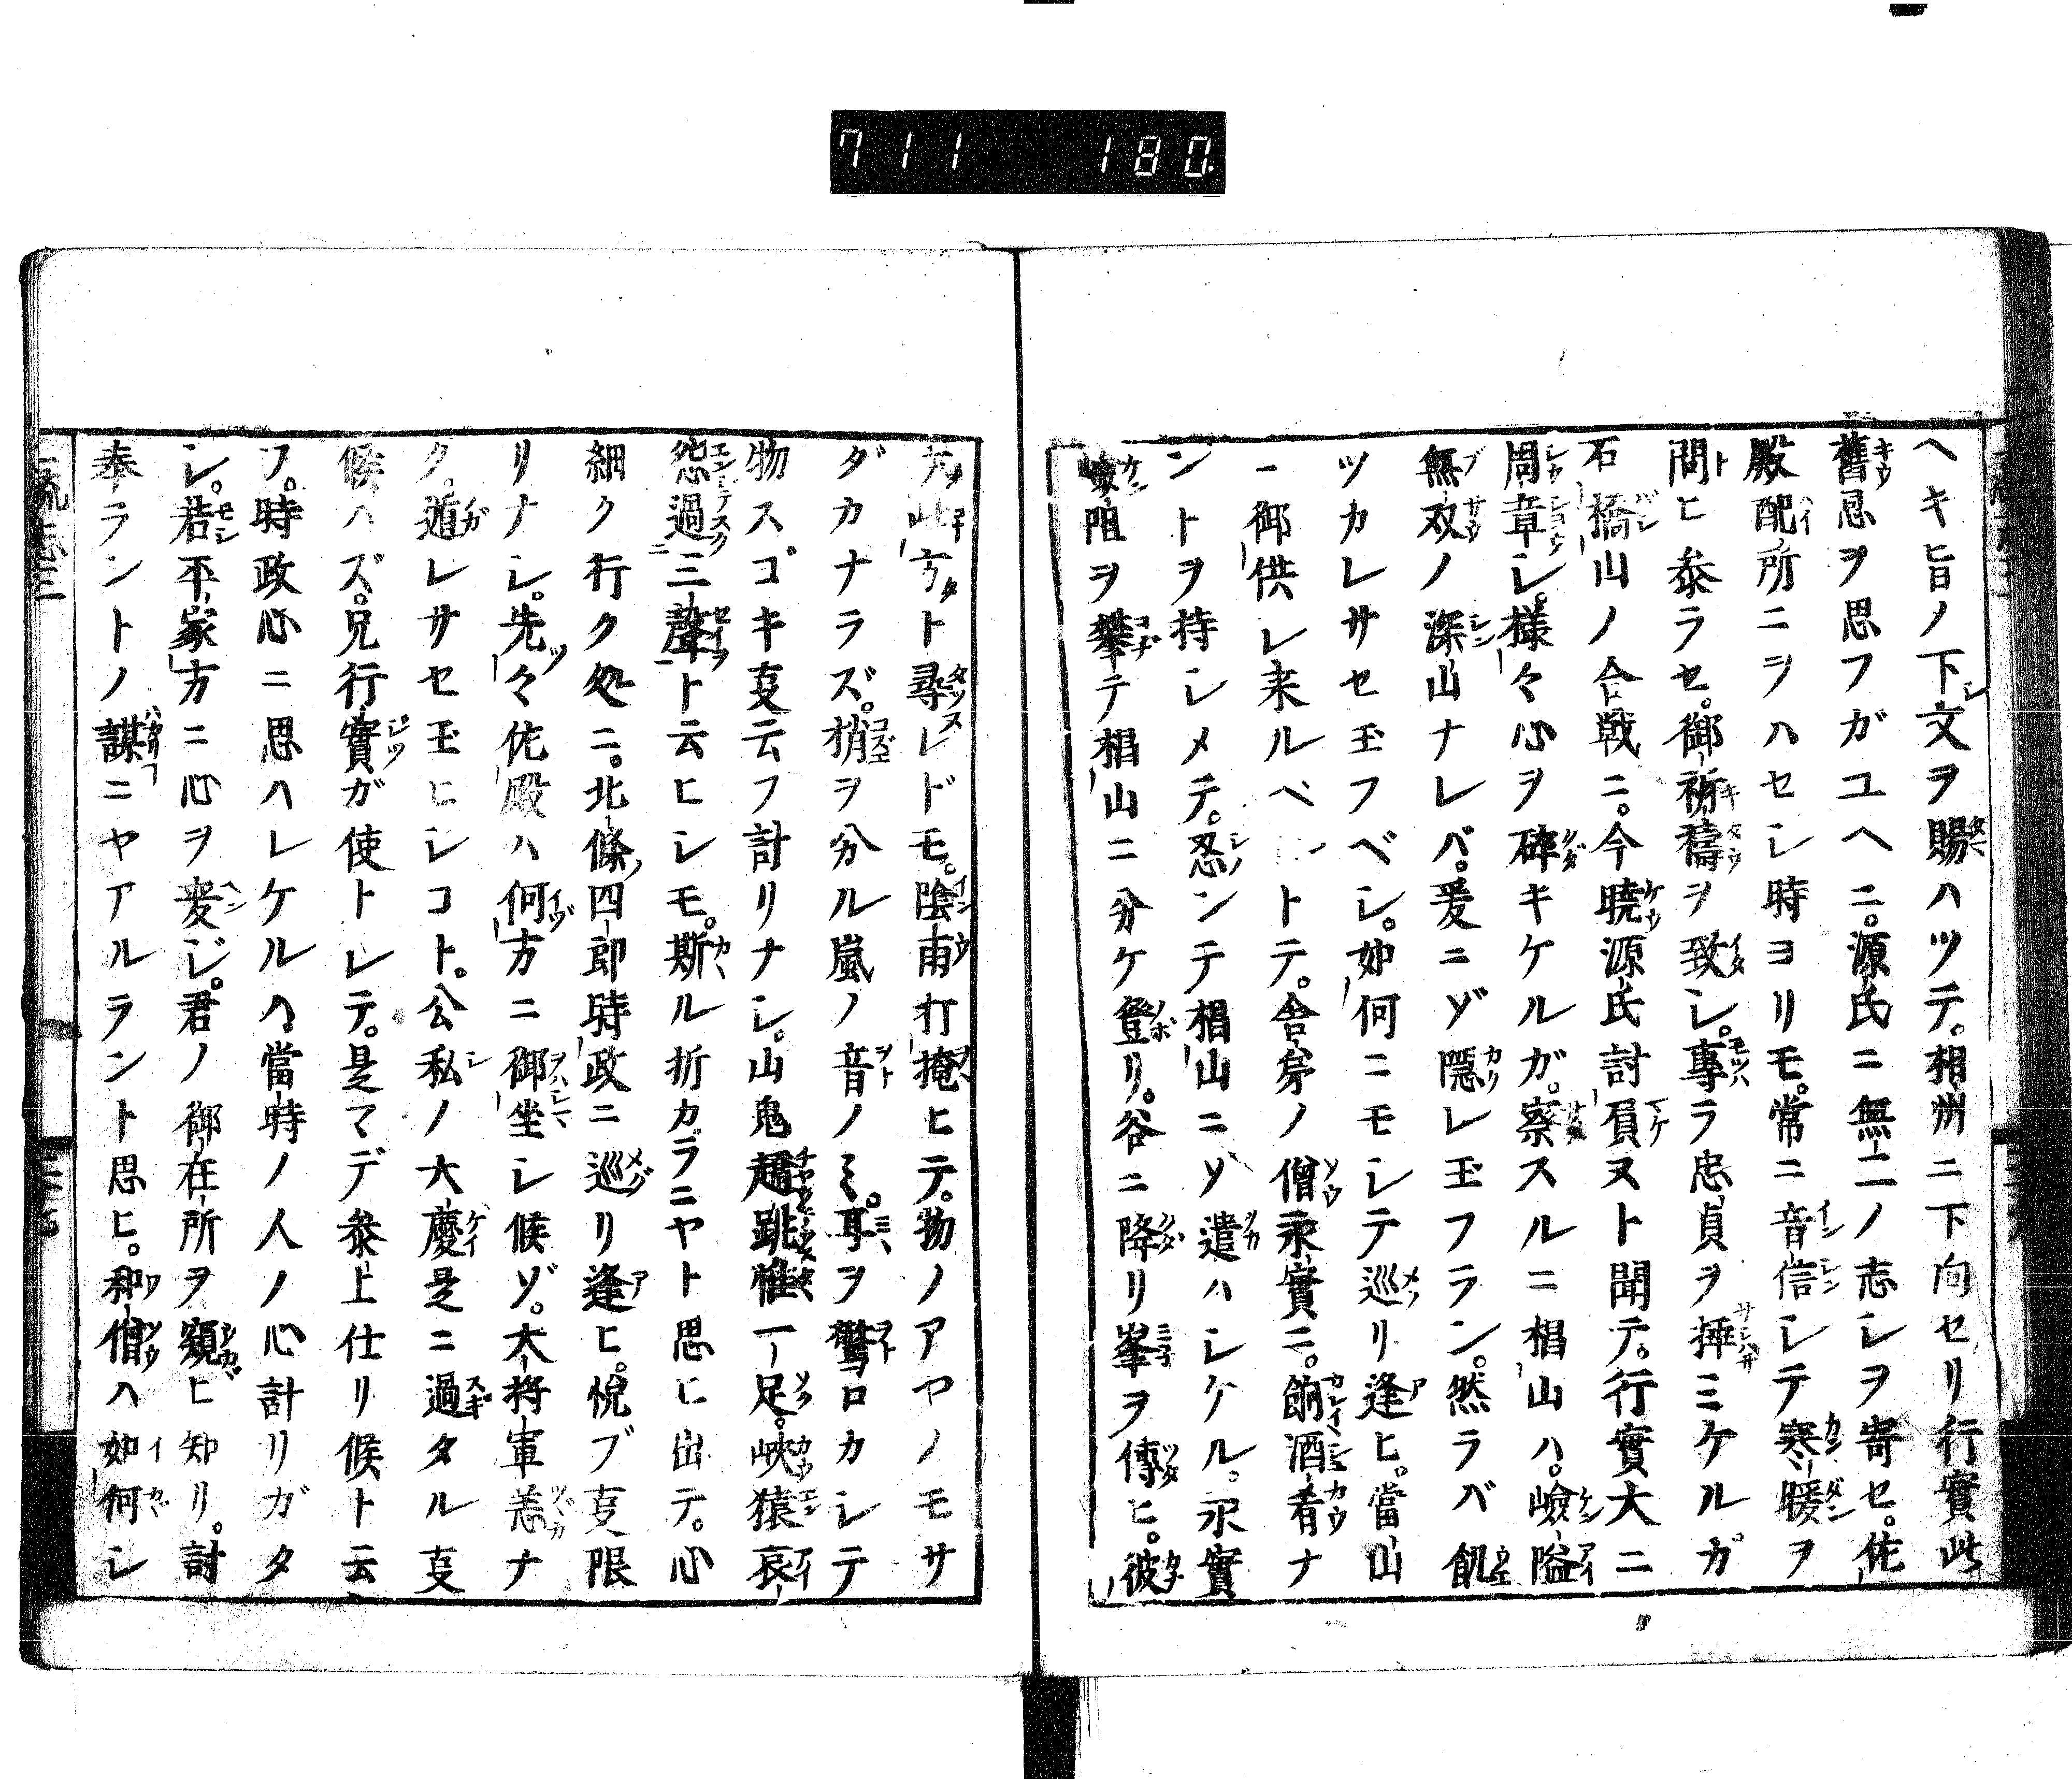 711 180
ヘキ旨ノ下文ヲ賜ハツテ。相州ニ下向セリ行實此
舊恩ヲ思フガユヘニ。源氏ニ無二ノ志シヲ寄セ。佐
殿配所ニヲハセシ時ヨリモ。常ニ音信シテ寒暖ヲ
問ヒ參ラセ。御祈禱ヲ致シ。專ラ忠貞ヲ挿ミケルガ
石橋山ノ合戦ニ。今曉源氏討負ヌト聞テ。行實大ニ
周章シ。様々心ヲ碎キケルガ。察スルニ椙山ハ。嶮隘
無双ノ深山ナレバ。爰ニゾ隠レ玉フラン。然ラバ飢
ツカレサセ玉フベシ。如何ニモシテ巡リ逢ヒ。當山
ニ御供シ来ルベシトテ。舎弟ノ僧永實ニ。餉酒肴ナ
ントヲ持シメテ。忍ンテ椙山ニソ遣ハシケル。永實
嶮阻ヲ攀テ椙山ニ分ケ登リ。谷ニ降リ峯ヲ傳ヒ。彼
方此方ト尋レドモ。陰雨打掩ヒテ。物ノアヤノモサ
ダカナラズ。梢ヲ分ル嵐ノ音ノミ。耳ヲ驚ロカシテ
物スゴキ叓云フ計リナシ。山鬼趙跳惟一足。峽猿哀
怨過三聲ト云ヒシモ。斯ル折カラニヤト思ヒ出テ。心
細ク行ク処ニ。北條四郎時政ニ巡リ逢ヒ。悦ブ叓限
リナシ。先々佐殿ハ何方ニ御坐シ候ゾ。大将軍恙ナ
ク。遁レサセ玉ヒシコト。公私ノ大慶是ニ過タル叓
候ハズ。兄行實ガ使トシテ。是マデ參上仕リ候ト云
フ。時政心ニ思ハレケルハ。當時ノ人ノ心計リガタ
シ。若平家方ニ心ヲ変ジ。君ノ御在所ヲ窺ヒ知リ。討
奉ラントノ謀ニヤアルラント思ヒ。和僧ハ如何シ